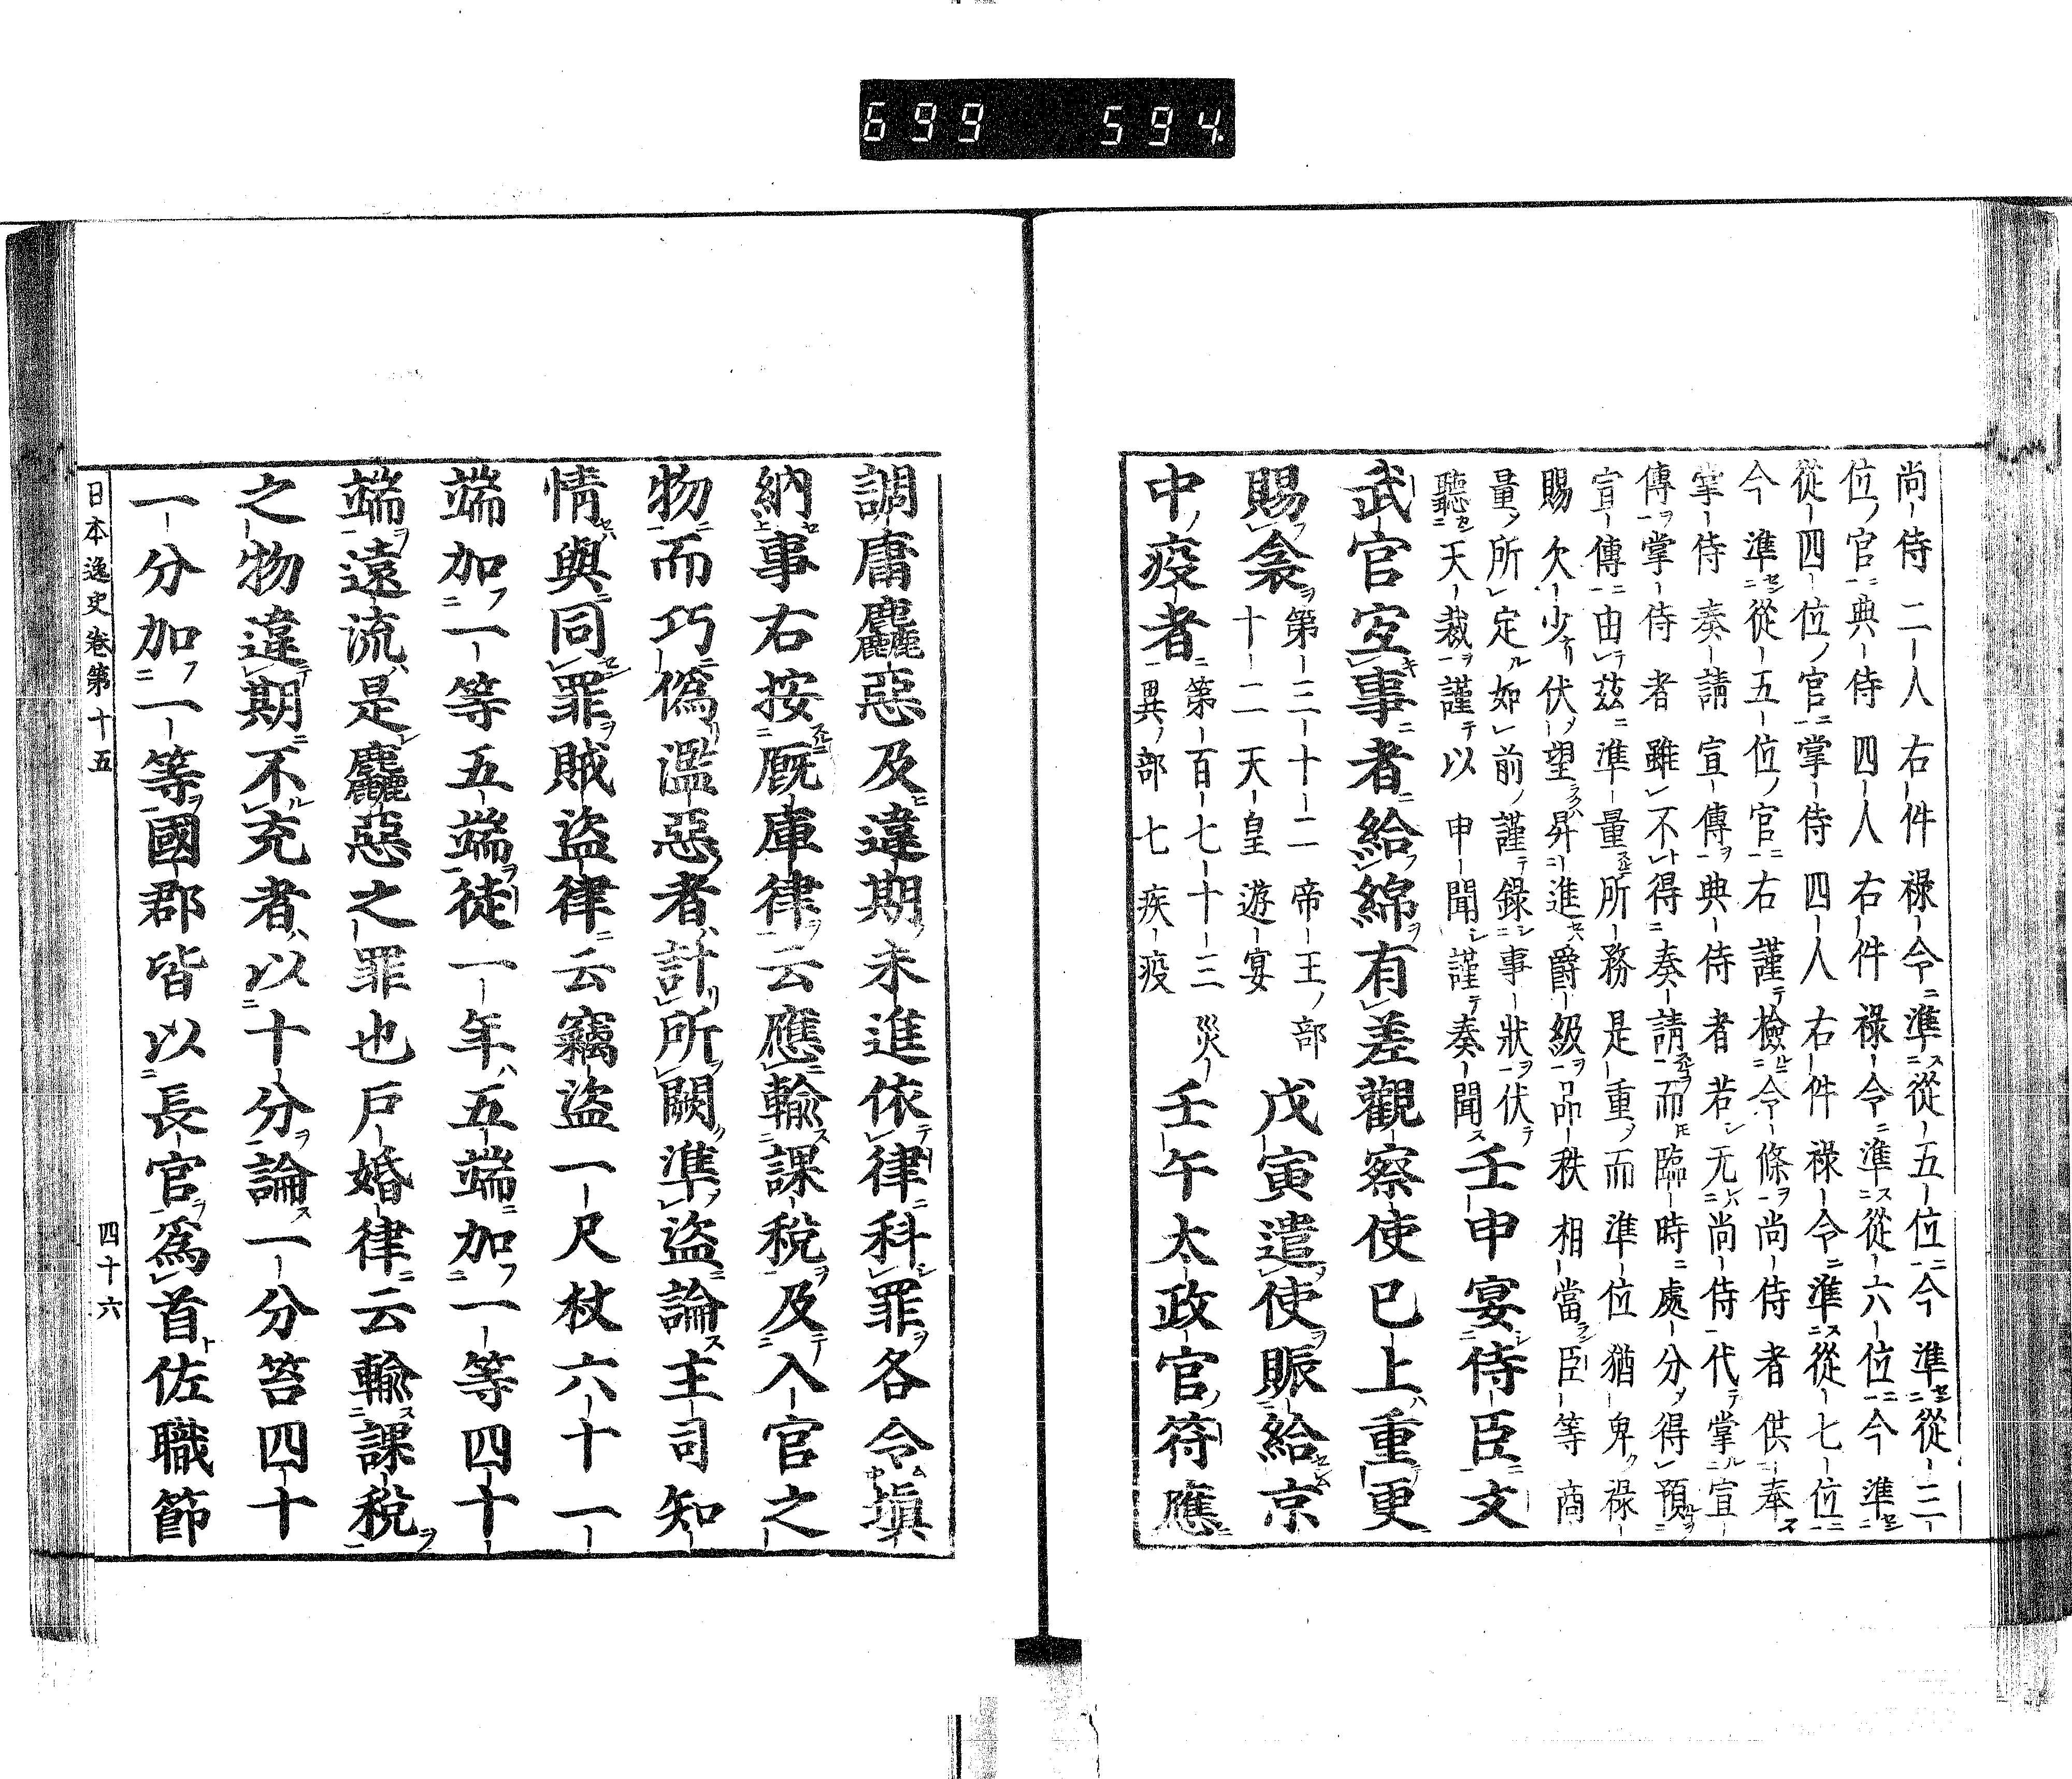 699 594
尚侍二人右件祿令準從五位今準從三
位官典侍四人右件祿令準從六位今準
從四位官掌侍四人右件祿令準從七位
今準從五位官右謹檢令條尚侍者供奉
掌侍奏請宣傳典侍者若无尚侍代掌宣
傳掌侍者雖不得奏請而臨時處分得預
宣傳由茲準量所務是重而準位猶卑祿
賜欠少伏望昇進爵級品秩相當臣等商
量所定如前謹錄事狀伏
聽天裁謹以申聞謹奏聞
壬申宴侍臣文
武官空事者給綿有差觀察使已上重更
賜衾
第三十二帝王部
十二天皇遊宴
戊寅遣使賑給京
中疫者
第百七十三災
異部七疾疫
壬午太政官符應
調庸麤惡及違期未進依律科罪各令塡
納事右按厩庫律云應輸課稅及入官之
物而巧僞濫惡者計所闕準盜論主司知
情與同罪賊盜律云竊盜一尺杖六十一
端加一等五端徒一年五端加一等四十
端遠流是麤惡之罪也戶婚律云輸課稅
之物違期不充者以十分論一分笞四十
一分加一等國郡皆以長官爲首佐職節
日本逸史卷第十五 四十六